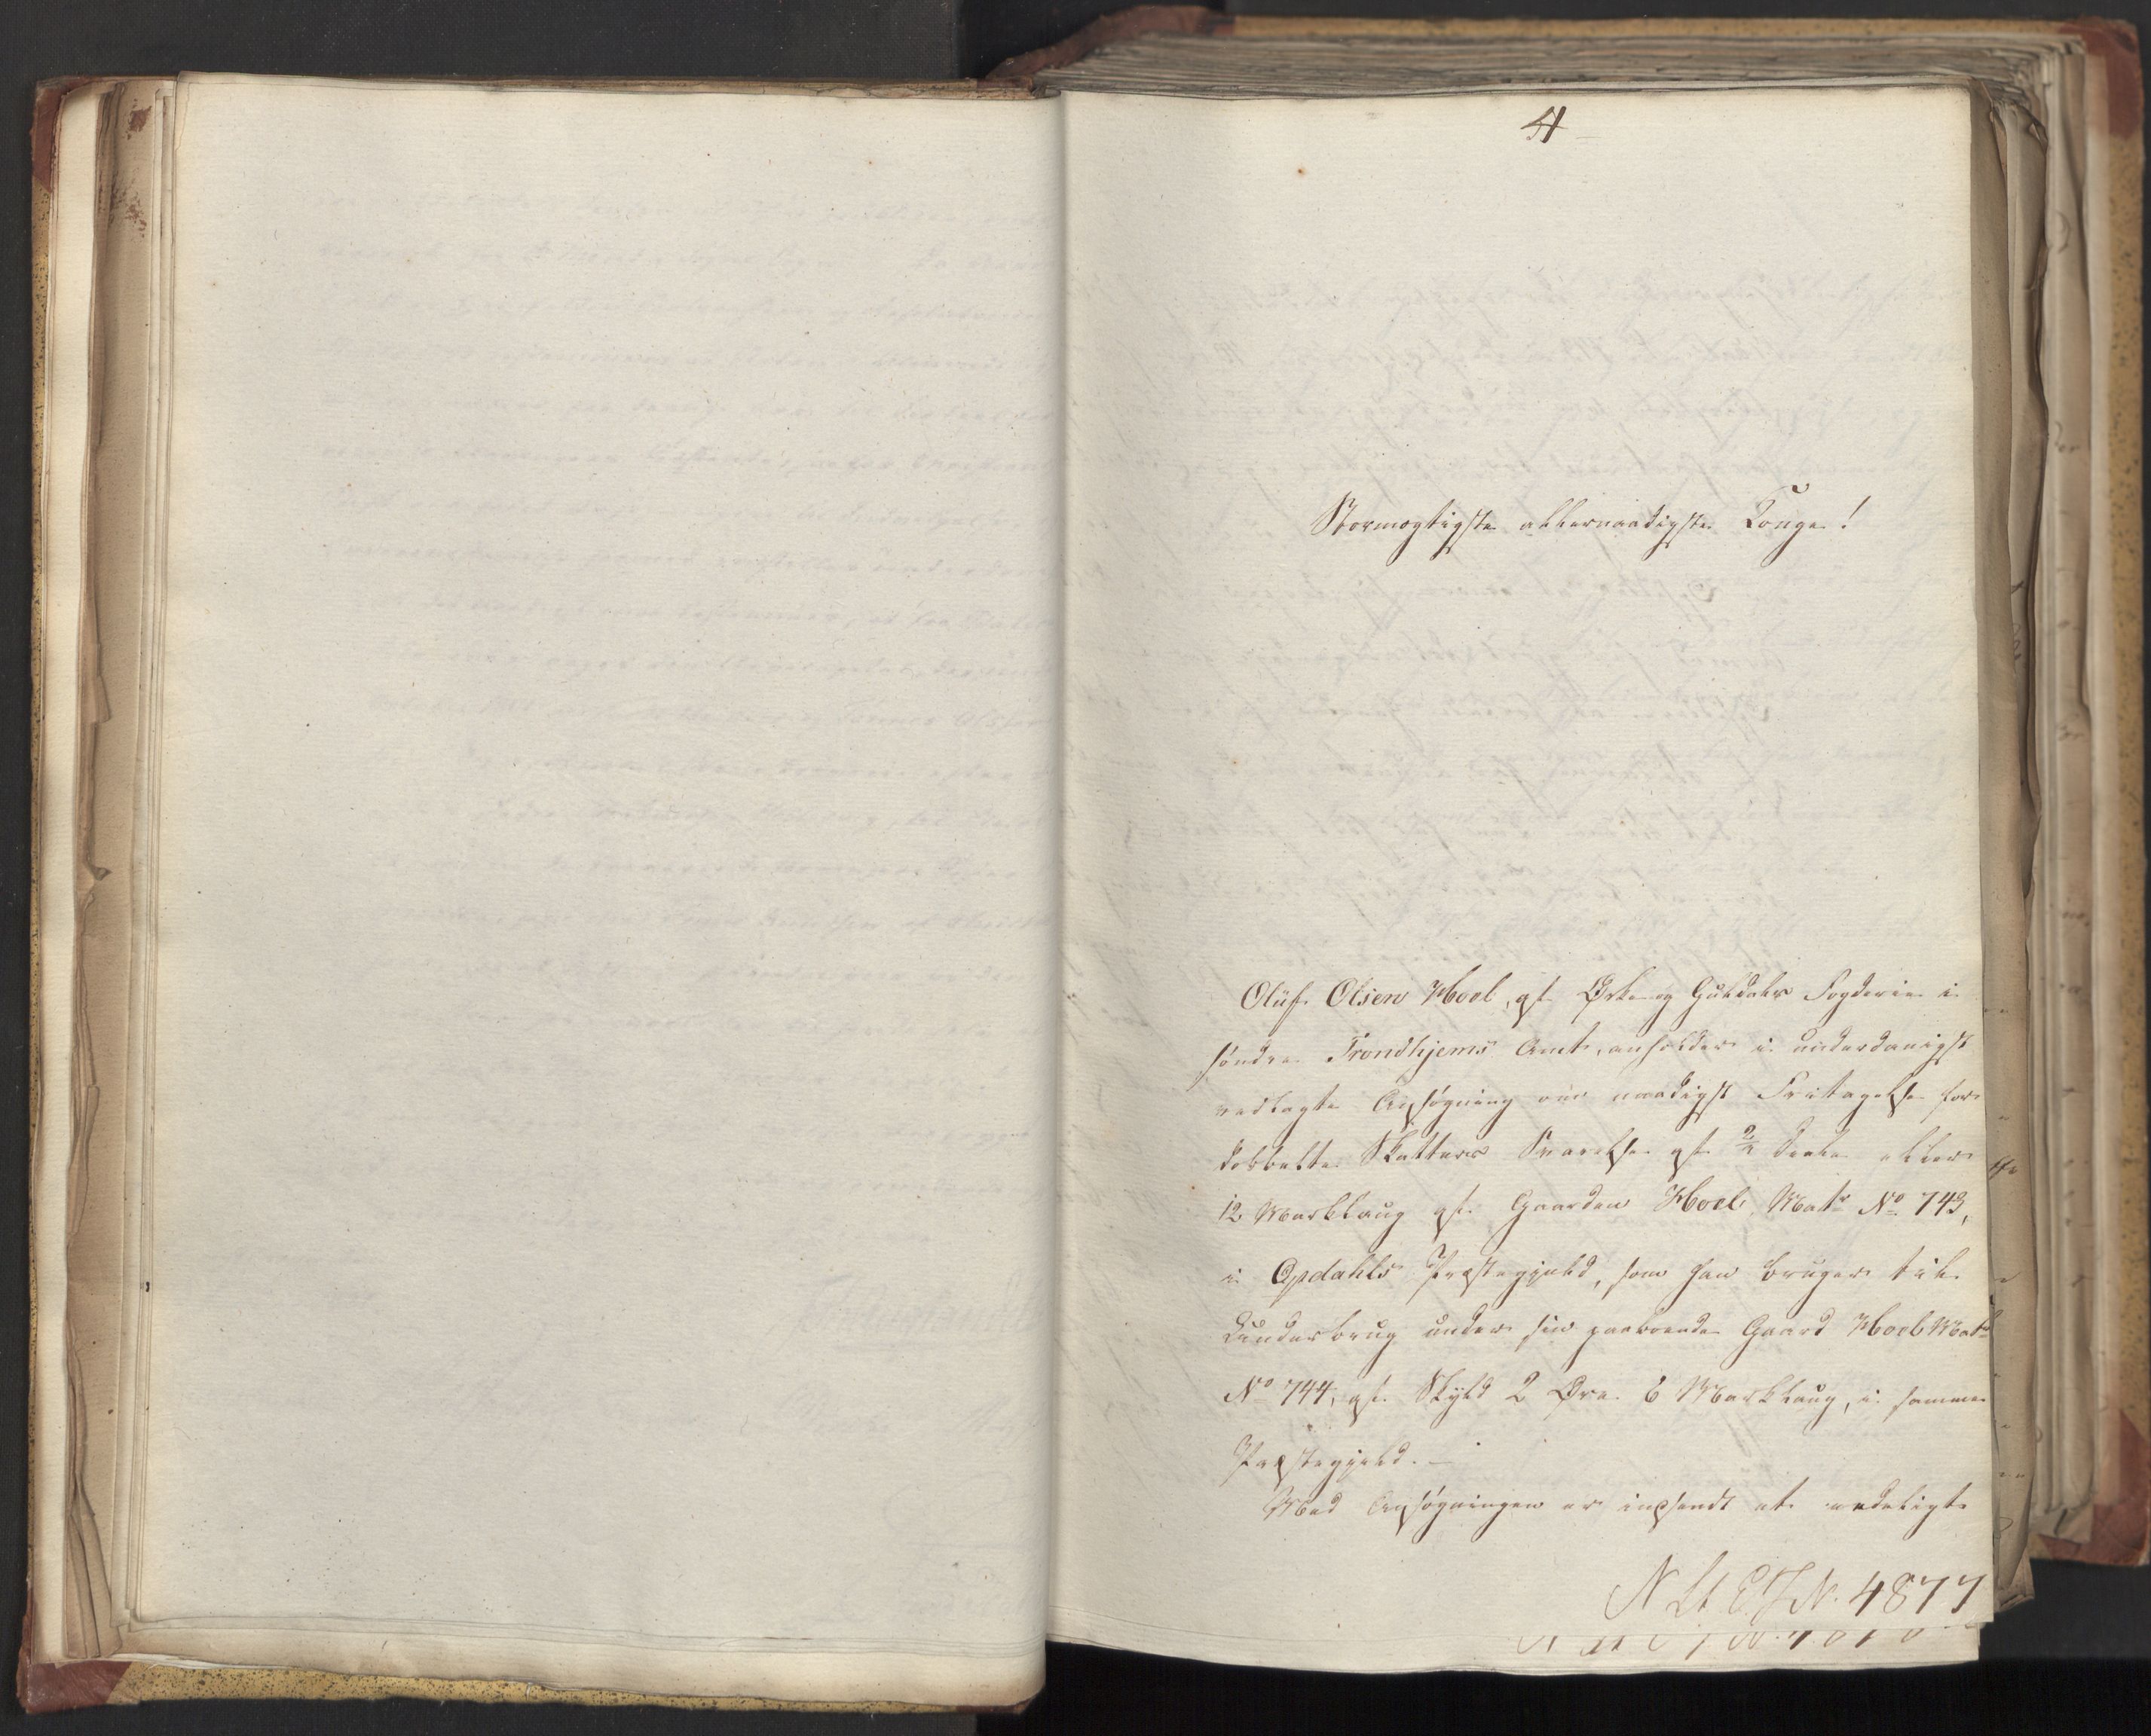 4
Stormægtigste allernaadigste Konge!
Oluf Olsen Hoel, af Ørke og Guldals Fogderie i
søndre Trondhjems Amt, anholder i underdanigst
vedlagte Ansøgning om naadigst Fritagelse for
dobbelte Skatters Svarelse af 2/ eller
12 Marklaug af Gaarden Hoel, Matr No 743,
i Opdahls Præstegjeld, som han bruger til
Underbrug under sin paaboende Gaard Hoel Matr
No 744, af Skyld 2 Øre 6 Marklaug, i samme
Præstegjeld. —
Med Ansøgningen er indsendt et edeligt
N. 4877